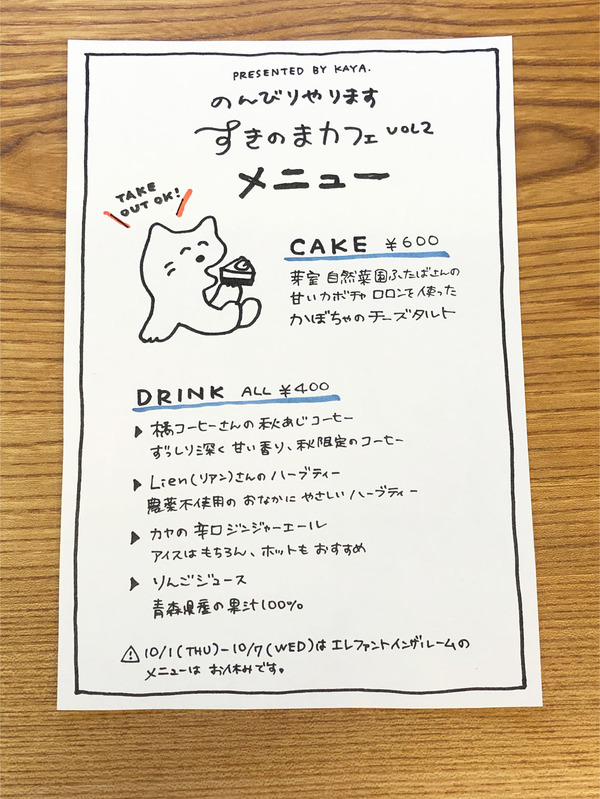 PRESENTED BY KAYA.
のんびりやります
すきのまカフェ VOL2
メニュー
TAKE
OUT OK!
CAKE ¥600
芽室 自然菜園ふたばさんの
甘いカボチャ ロロンを使った
かぼちゃのチーズタルト
DRINK ALL ¥400
▶ 橘コーヒーさんの秋あじコーヒー
ずっしり深く甘い香り、秋限定のコーヒー
▶ Lien(リアン)さんのハーブティー
農薬不使用の おなかに やさしい ハーブティー
▶ カヤの 辛口ジンジャーエール
アイスは もちろん、ホットも おすすめ
▶ りんごジュース
青森県産の果汁100%
⚠ 10/1(THU)-10/7(WED)は エレファントインザルームの
メニューは お休みです。